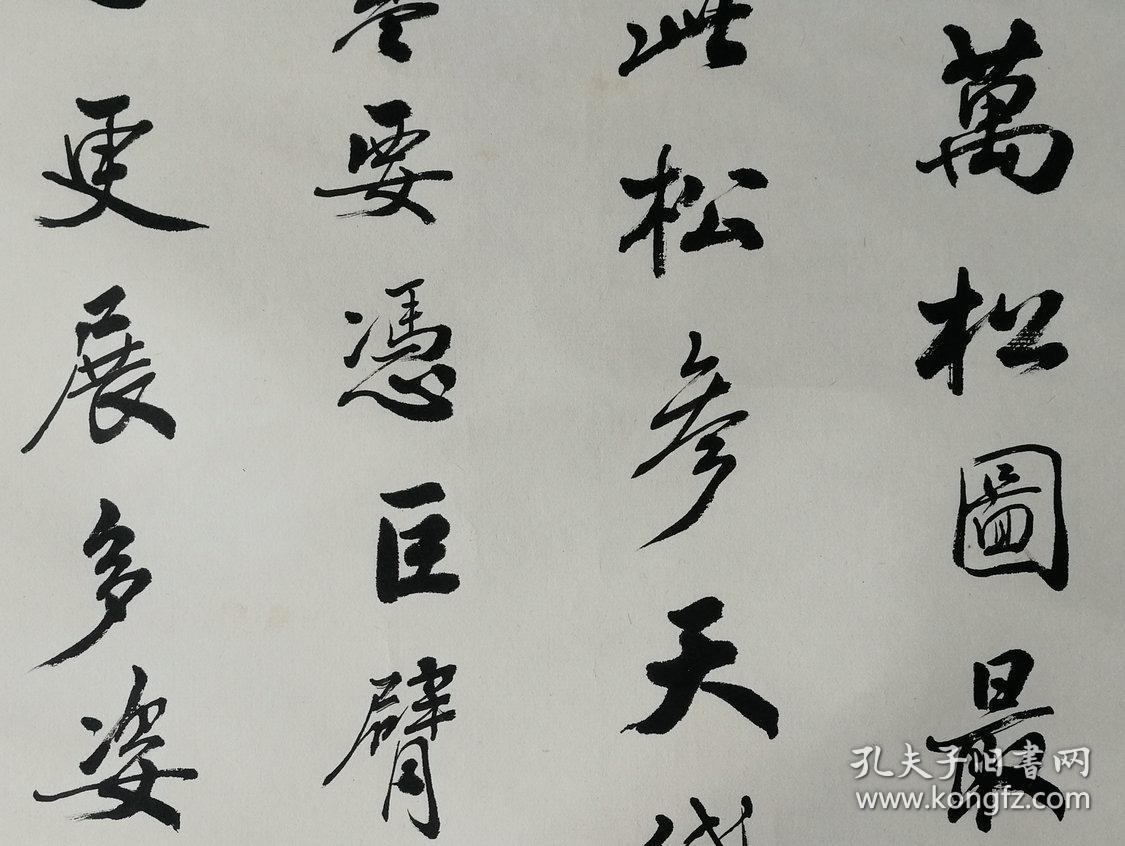 萬松圖最
此松參天
要憑巨臂
更展多姿
孔夫子旧書网
www.kongfz.com